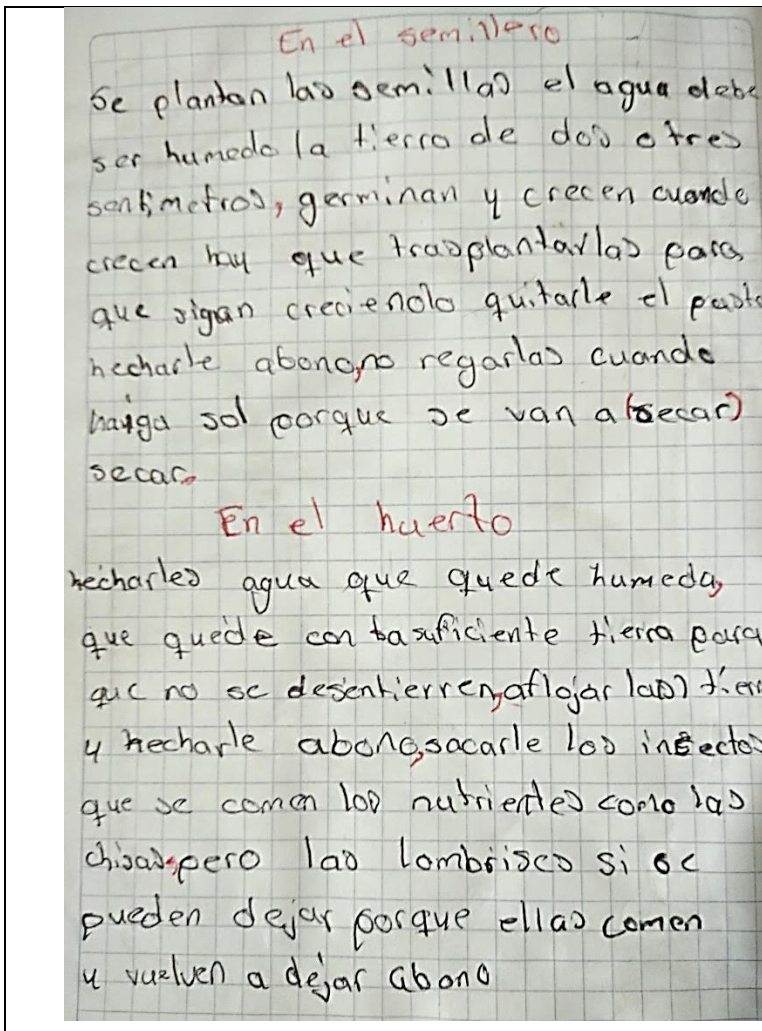 En el semillero
Se plantan las semillas el agua debe
ser humedo la tierra de dos o tres
sentimetros, germinan y crecen cuando
crecen hay que trasplantarlas para
que sigan creciendo quitarle el pasto
hecharle abono, no regarlas cuando
haiga sol porque se van a (secar)
secar.
En el huerto
hecharles agua que quede humeda,
que quede con basuficiente tierra para
que no se desentierren, aflojar la(s) tierr
y hecharle abono, sacarle los insectos
que se comen los nutrientes como las
chisas, pero las lombrises si se
pueden dejar porque ellas comen
y vuelven a dejar abono